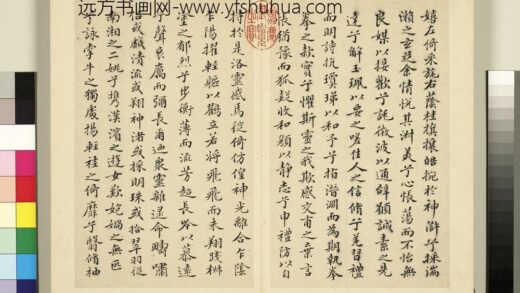 远方书画网-www.yfshuhua.com
嬉左倚采旄右蔭桂旗攘皓捥於神滸兮采湍
瀨之玄芝余情悅其淑美兮心振蕩而不怡無
良媒以接歡兮託微波以通辭願誠素之先
達兮解玉珮以要之嗟佳人之信脩兮羌習禮
而明詩抗瓊珶以和予兮指潛淵而為期執拳
拳之款實兮懼斯靈之我欺感交甫之棄言
悵猶豫而狐疑收和顏以靜志兮申禮防以自
持於是洛靈感焉徙倚仿偟神光離合乍陰
乍陽擢輕軀以鶴立若將飛而未翔踐椒
塗之郁烈兮步蘅薄而流芳超長吟以慕遠
兮聲哀厲而彌長爾迺眾靈雜遝命疇嘯
侶或戲清流或翔神渚或採明珠或拾翠羽從
南湘之二姚兮攜漢濱之遊女歎匏媧之無匹
兮詠牽牛之獨處揚輕袿之倚靡兮翳脩袖